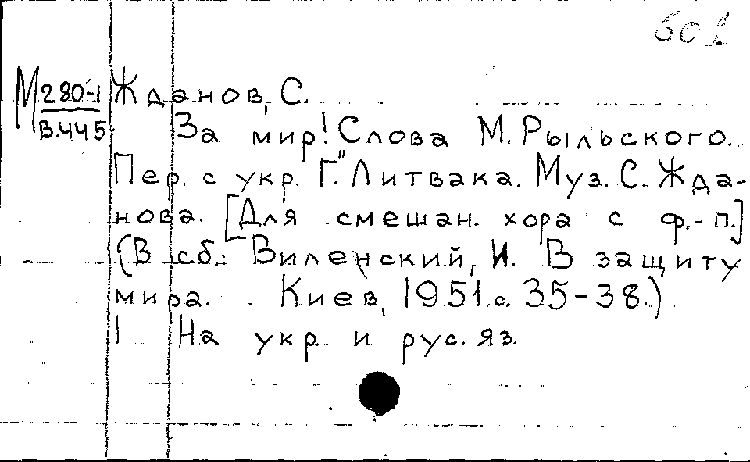 М 280-1
В.445
Жданов, С.
За мир! Слова М. Рыльского.
Пер. с укр. Г. Литвака. Муз. С. Жда-
нова. [Для смешан. хора с ф.-п.]
(В сб.: Виленский, И. В защиту
мира. Киев, 1951. с. 35-38.)
На укр. и рус. яз.